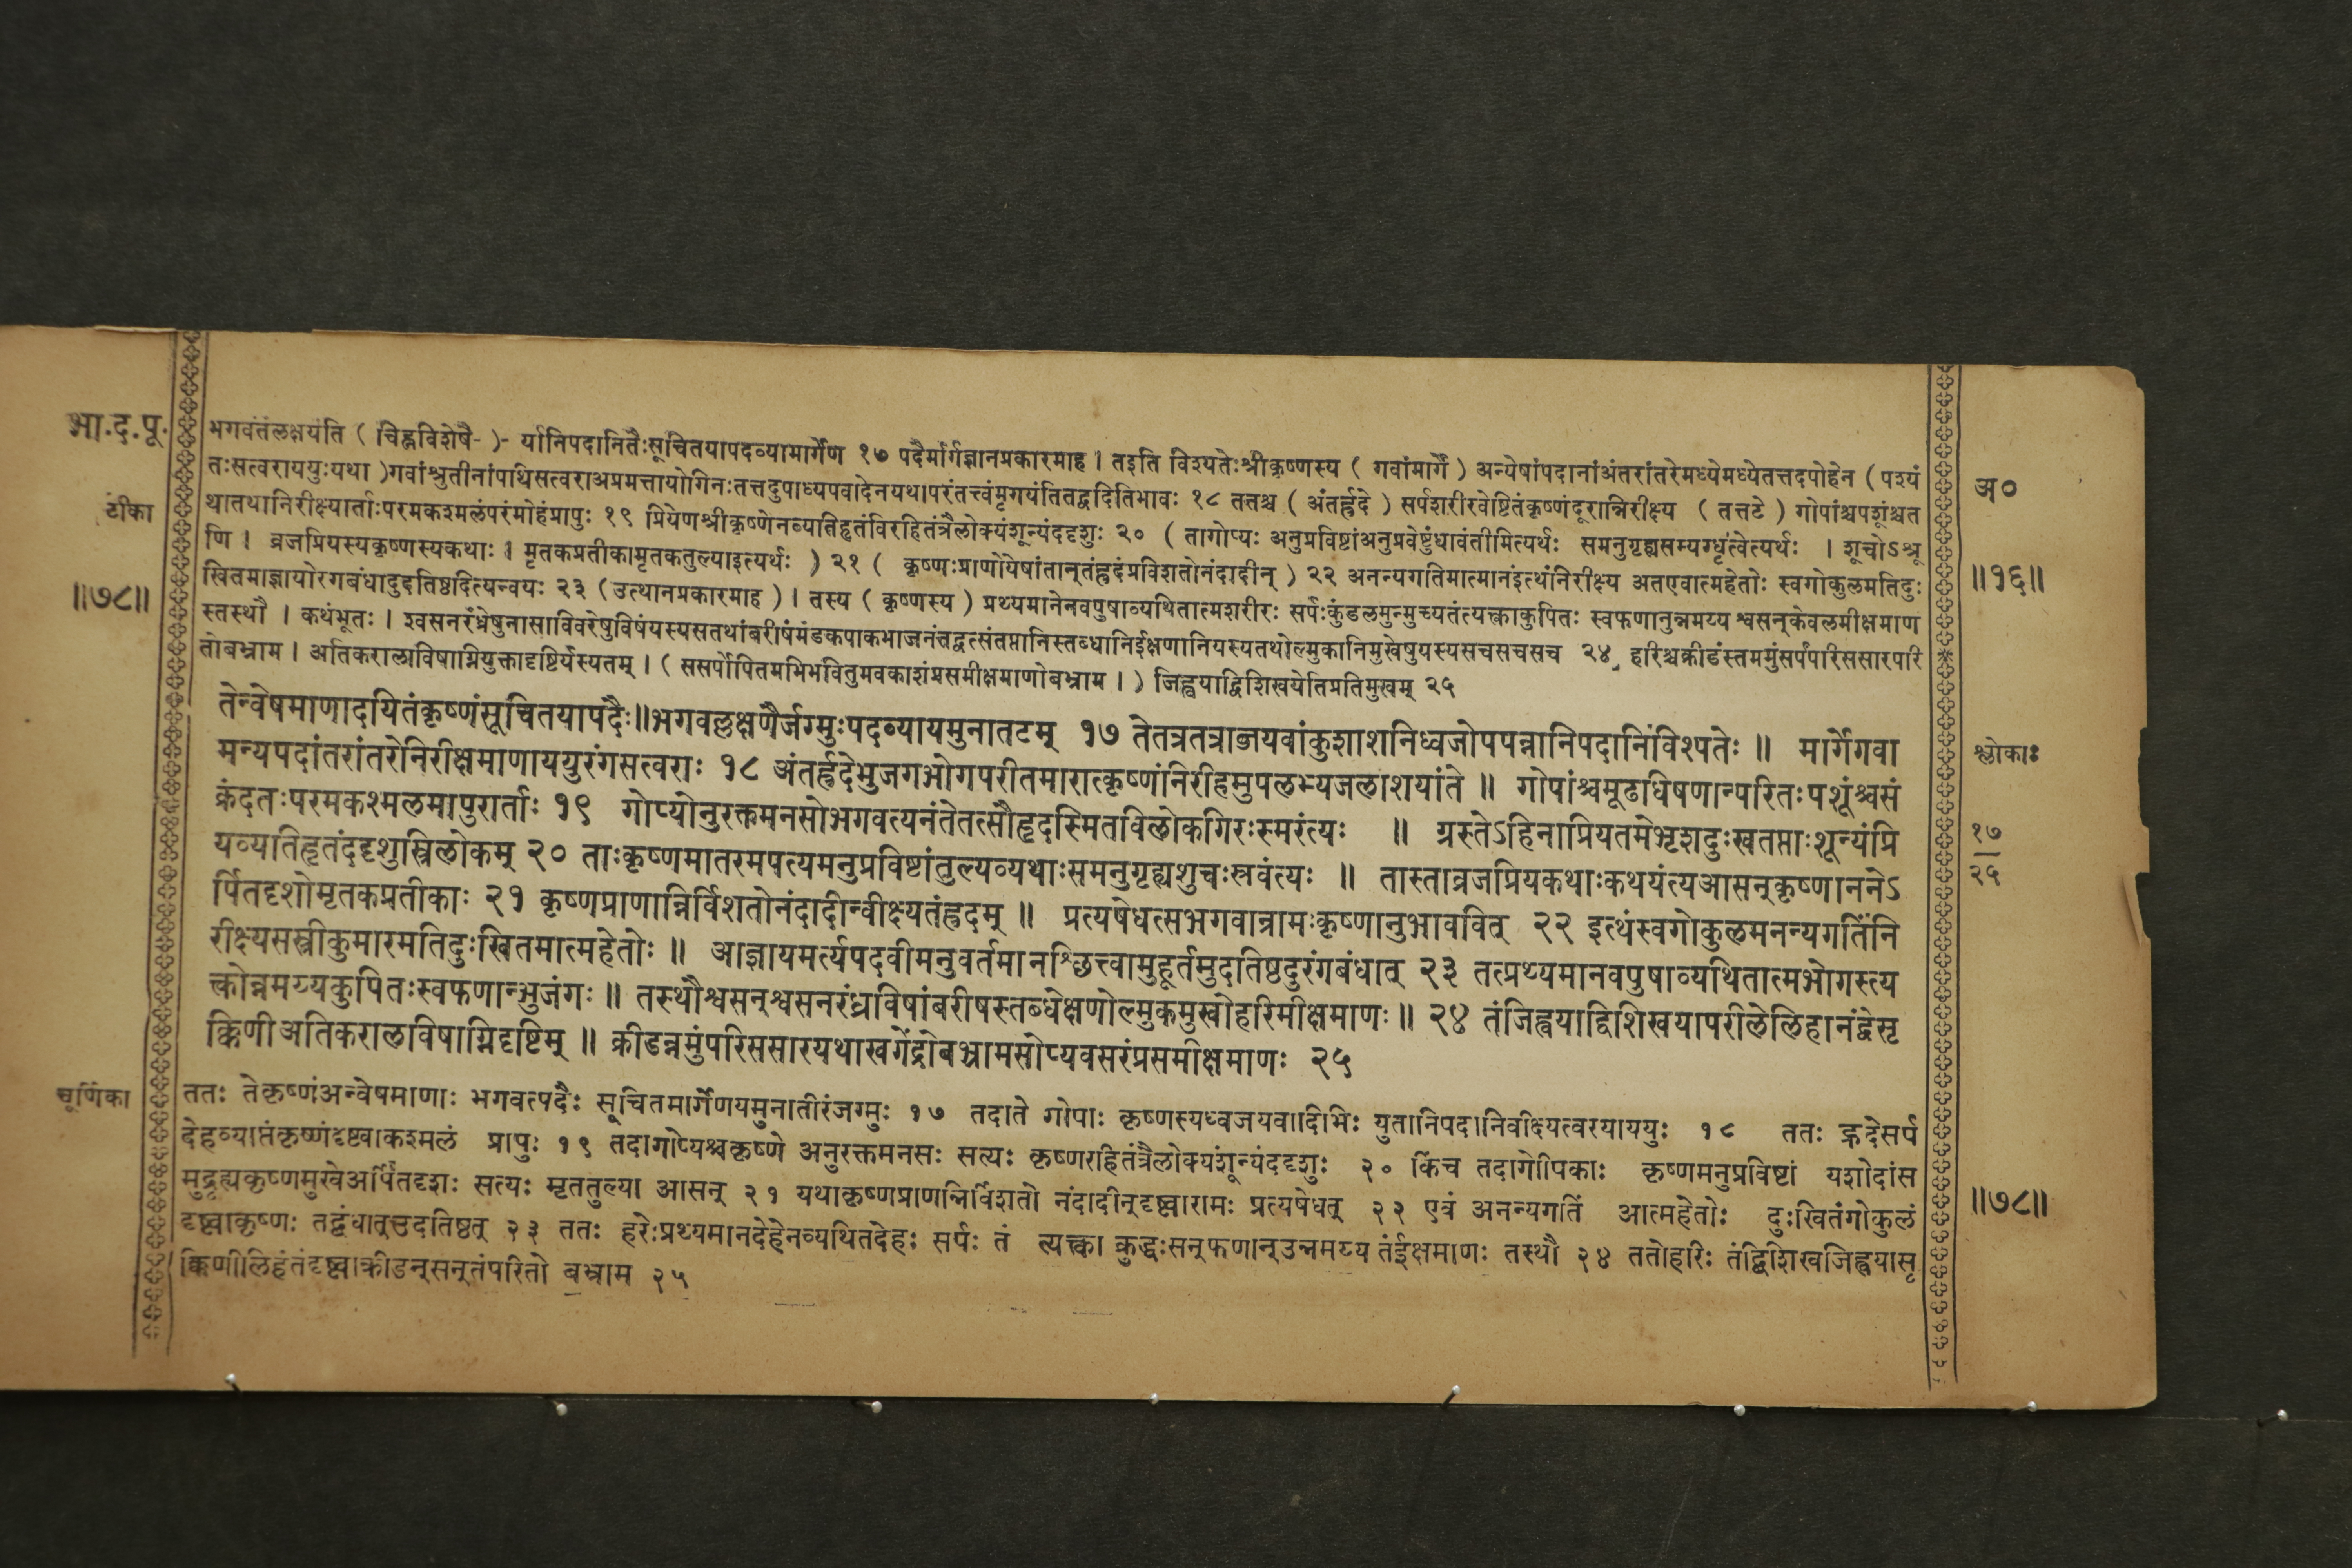 भा.द.पू.
टीका
॥७८॥
भगवंतंलक्षयंति ( चिह्नविशेषै- )- र्यानिपदानितैःसूचितयापदव्यामार्गेण १७ पदैर्मार्गज्ञानप्रकारमाह । तइति विश्यतेःश्रीकृष्णस्य ( गवांमार्गे ) अन्येषांपदानांअंतरांतरेमध्येमध्येतत्तदपोहेन ( पश्यं
तःसत्वराययुःयथा )गवांश्रुतीनांपथिसत्वराअप्रमत्तायोगिनःतत्तदुपाध्यपवादेनयथापरंतत्त्वंमृगयंतितद्वदितिभावः १८ ततश्च ( अंतर्ह्रदे ) सर्पशरीरवेष्टितंकृष्णंदूरान्निरीक्ष्य ( तत्तटे ) गोपांश्चपशूंश्चत
थातथानिरीक्ष्यार्ताःपरमकश्मलंपरंमोहंप्रापुः १९ प्रियेणश्रीकृष्णेनव्यतिहृतंविरहितंत्रैलोक्यंशून्यंददृशुः २० ( तागोप्यः अनुप्रविष्टांअनुप्रवेष्टुंधावंतीमित्यर्थः समनुगृह्यसम्यग्धृत्वेत्यर्थः । शूचोऽश्रू
णि । व्रजप्रियस्यकृष्णस्यकथाः । मृतकप्रतीकामृतकतुल्याइत्यर्थः ) २१ ( कृष्णःप्राणोयेषांतान्तंह्रदंप्रविशतोनंदादीन् ) २२ अनन्यगतिमात्मानंइत्थंनिरीक्ष्य अतएवात्महेतोः स्वगोकुलमतिदुः
खितमाज्ञायोरगबंधादुदतिष्ठदित्यन्वयः २३ (उत्थानप्रकारमाह ) । तस्य ( कृष्णस्य ) प्रथ्यमानेनवपुषाव्यथितात्मशरीरः सर्पःकुंडलमुन्मुच्यतंत्यक्त्वाकुपितः स्वफणानुन्नमय्य श्वसन्केवलमीक्षमाण
स्तस्थौ । कथंभूतः । श्वसनरंध्रेषुनासाविवरेषुविषंयस्यसतथांबरीषंमंडकपाकभाजनंतद्वत्संतप्तानिस्तब्धानिईक्षणानियस्यतथोल्मुकानिमुखेषुयस्यसचसचसच २४ हरिश्चक्रीडंस्तममुंसर्पंपरिससारपरि
तोबभ्राम । अतिकरालाविषाग्नियुक्तादृष्टिर्यस्यतम् । ( ससर्पोपितमभिभवितुमवकाशंप्रसमीक्षमाणोबभ्राम । ) जिह्वयाद्विशिखयेतिप्रतिमुखम् २५
तेन्वेषमाणादयितंकृष्णंसूचितयापदैः॥भगवल्लक्षणैर्जग्मुःपदव्यायमुनातटम् १७ तेतत्रतत्राब्जयवांकुशाशनिध्वजोपपन्नानिपदानिविश्पतेः ॥ मार्गेगवा
मन्यपदांतरांतरेनिरीक्षमाणाययुरंगसत्वराः १८ अंतर्ह्रदेभुजगभोगपरीतमारात्कृष्णंनिरीहमुपलभ्यजलाशयांते ॥ गोपांश्चमूढधिषणान्परितःपशूंश्चसं
क्रंदतःपरमकश्मलमापुरार्ताः १९ गोप्योनुरक्तमनसोभगवत्यनंतेतत्सौहृदस्मितविलोकगिरःस्मरंत्यः ॥ ग्रस्तेऽहिनाप्रियतमेभृशदुःखतप्ताःशून्यंप्रि
यव्यतिहृतंददृशुस्त्रिलोकम् २० ताःकृष्णमातरमपत्यमनुप्रविष्टांतुल्यव्यथाःसमनुगृह्यशुचःस्रवंत्यः ॥ तास्ताव्रजप्रियकथाःकथयंत्यआसन्कृष्णाननेऽ
र्पितदृशोमृतकप्रतीकाः २१ कृष्णप्राणान्निर्विशतोनंदादीन्वीक्ष्यतंह्रदम् ॥ प्रत्यषेधत्सभगवान्रामःकृष्णानुभाववित् २२ इत्थंस्वगोकुलमनन्यगतिंनि
रीक्ष्यसस्त्रीकुमारमतिदुःखितमात्महेतोः ॥ आज्ञायमर्त्यपदवीमनुवर्तमानश्छित्त्वामुहूर्तमुदतिष्ठदुरंगबंधात् २३ तत्प्रथ्यमानवपुषाव्यथितात्मभोगस्त्य
क्त्वोन्नमय्यकुपितःस्वफणान्भुजंगः ॥ तस्थौश्वसन्श्वसनरंध्रविषांबरीषस्तब्धेक्षणोल्मुकमुखोहरिमीक्षमाणः ॥ २४ तंजिह्वयाद्विशिखयापरिलेलिहानंद्वेसृ
क्किणीअतिकरालविषाग्निदृष्टिम् ॥ क्रीडन्नमुंपरिससारयथाखगेंद्रोबभ्रामसोप्यवसरंप्रसमीक्षमाणः २५
चूर्णिका
ततः तेकृष्णंअन्वेषमाणाः भगवत्पदैः सूचितमार्गेणयमुनातीरंजग्मुः १७ तदाते गोपाः कृष्णस्यध्वजयवादिभिः युतानिपदानिवीक्ष्यत्वरयाययुः १८ ततः ह्रदेसर्प
देहव्याप्तंकृष्णंदृष्ट्वाकश्मलं प्रापुः १९ तदागोप्यश्चकृष्णे अनुरक्तमनसः सत्यः कृष्णरहितंत्रैलोक्यंशून्यंददृशुः २० किंच तदागोपिकाः कृष्णमनुप्रविष्टां यशोदांस
मुद्गृह्यकृष्णमुखेअर्पितदृशः सत्यः मृततुल्या आसन् २१ यथाकृष्णप्राणान्निर्विशतो नंदादीन्दृष्ट्वारामः प्रत्यषेधत् २२ एवं अनन्यगतिं आत्महेतोः दुःखितंगोकुलं
दृष्ट्वाकृष्णः तद्बंधात्उदतिष्ठत् २३ ततः हरेःप्रथ्यमानदेहेनव्यथितदेहः सर्पः तं त्यक्त्वा क्रुद्धःसन्फणान्उन्नमय्य तंईक्षमाणः तस्थौ २४ ततोहरिः तंद्विशिखजिह्वयासृ
क्किणीलिहंतंदृष्ट्वाक्रीडन्सन्तंपरितो बभ्राम २५
अ०
॥१६॥
श्लोकाः
१७
२५
॥७८॥